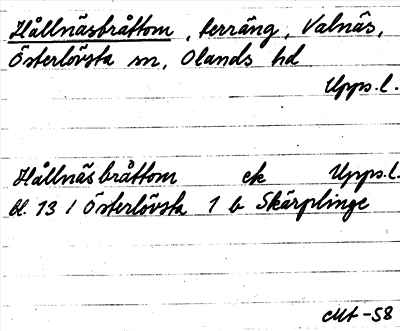 Hållnäsbråttom, terräng, Valnäs,
Österlövsta sn, Olands hd
Upps. l.
Hållnäsbråttom ek Upps. l.
bl. 13 / Österlövsta 1 b Skärplinge
Mt -58